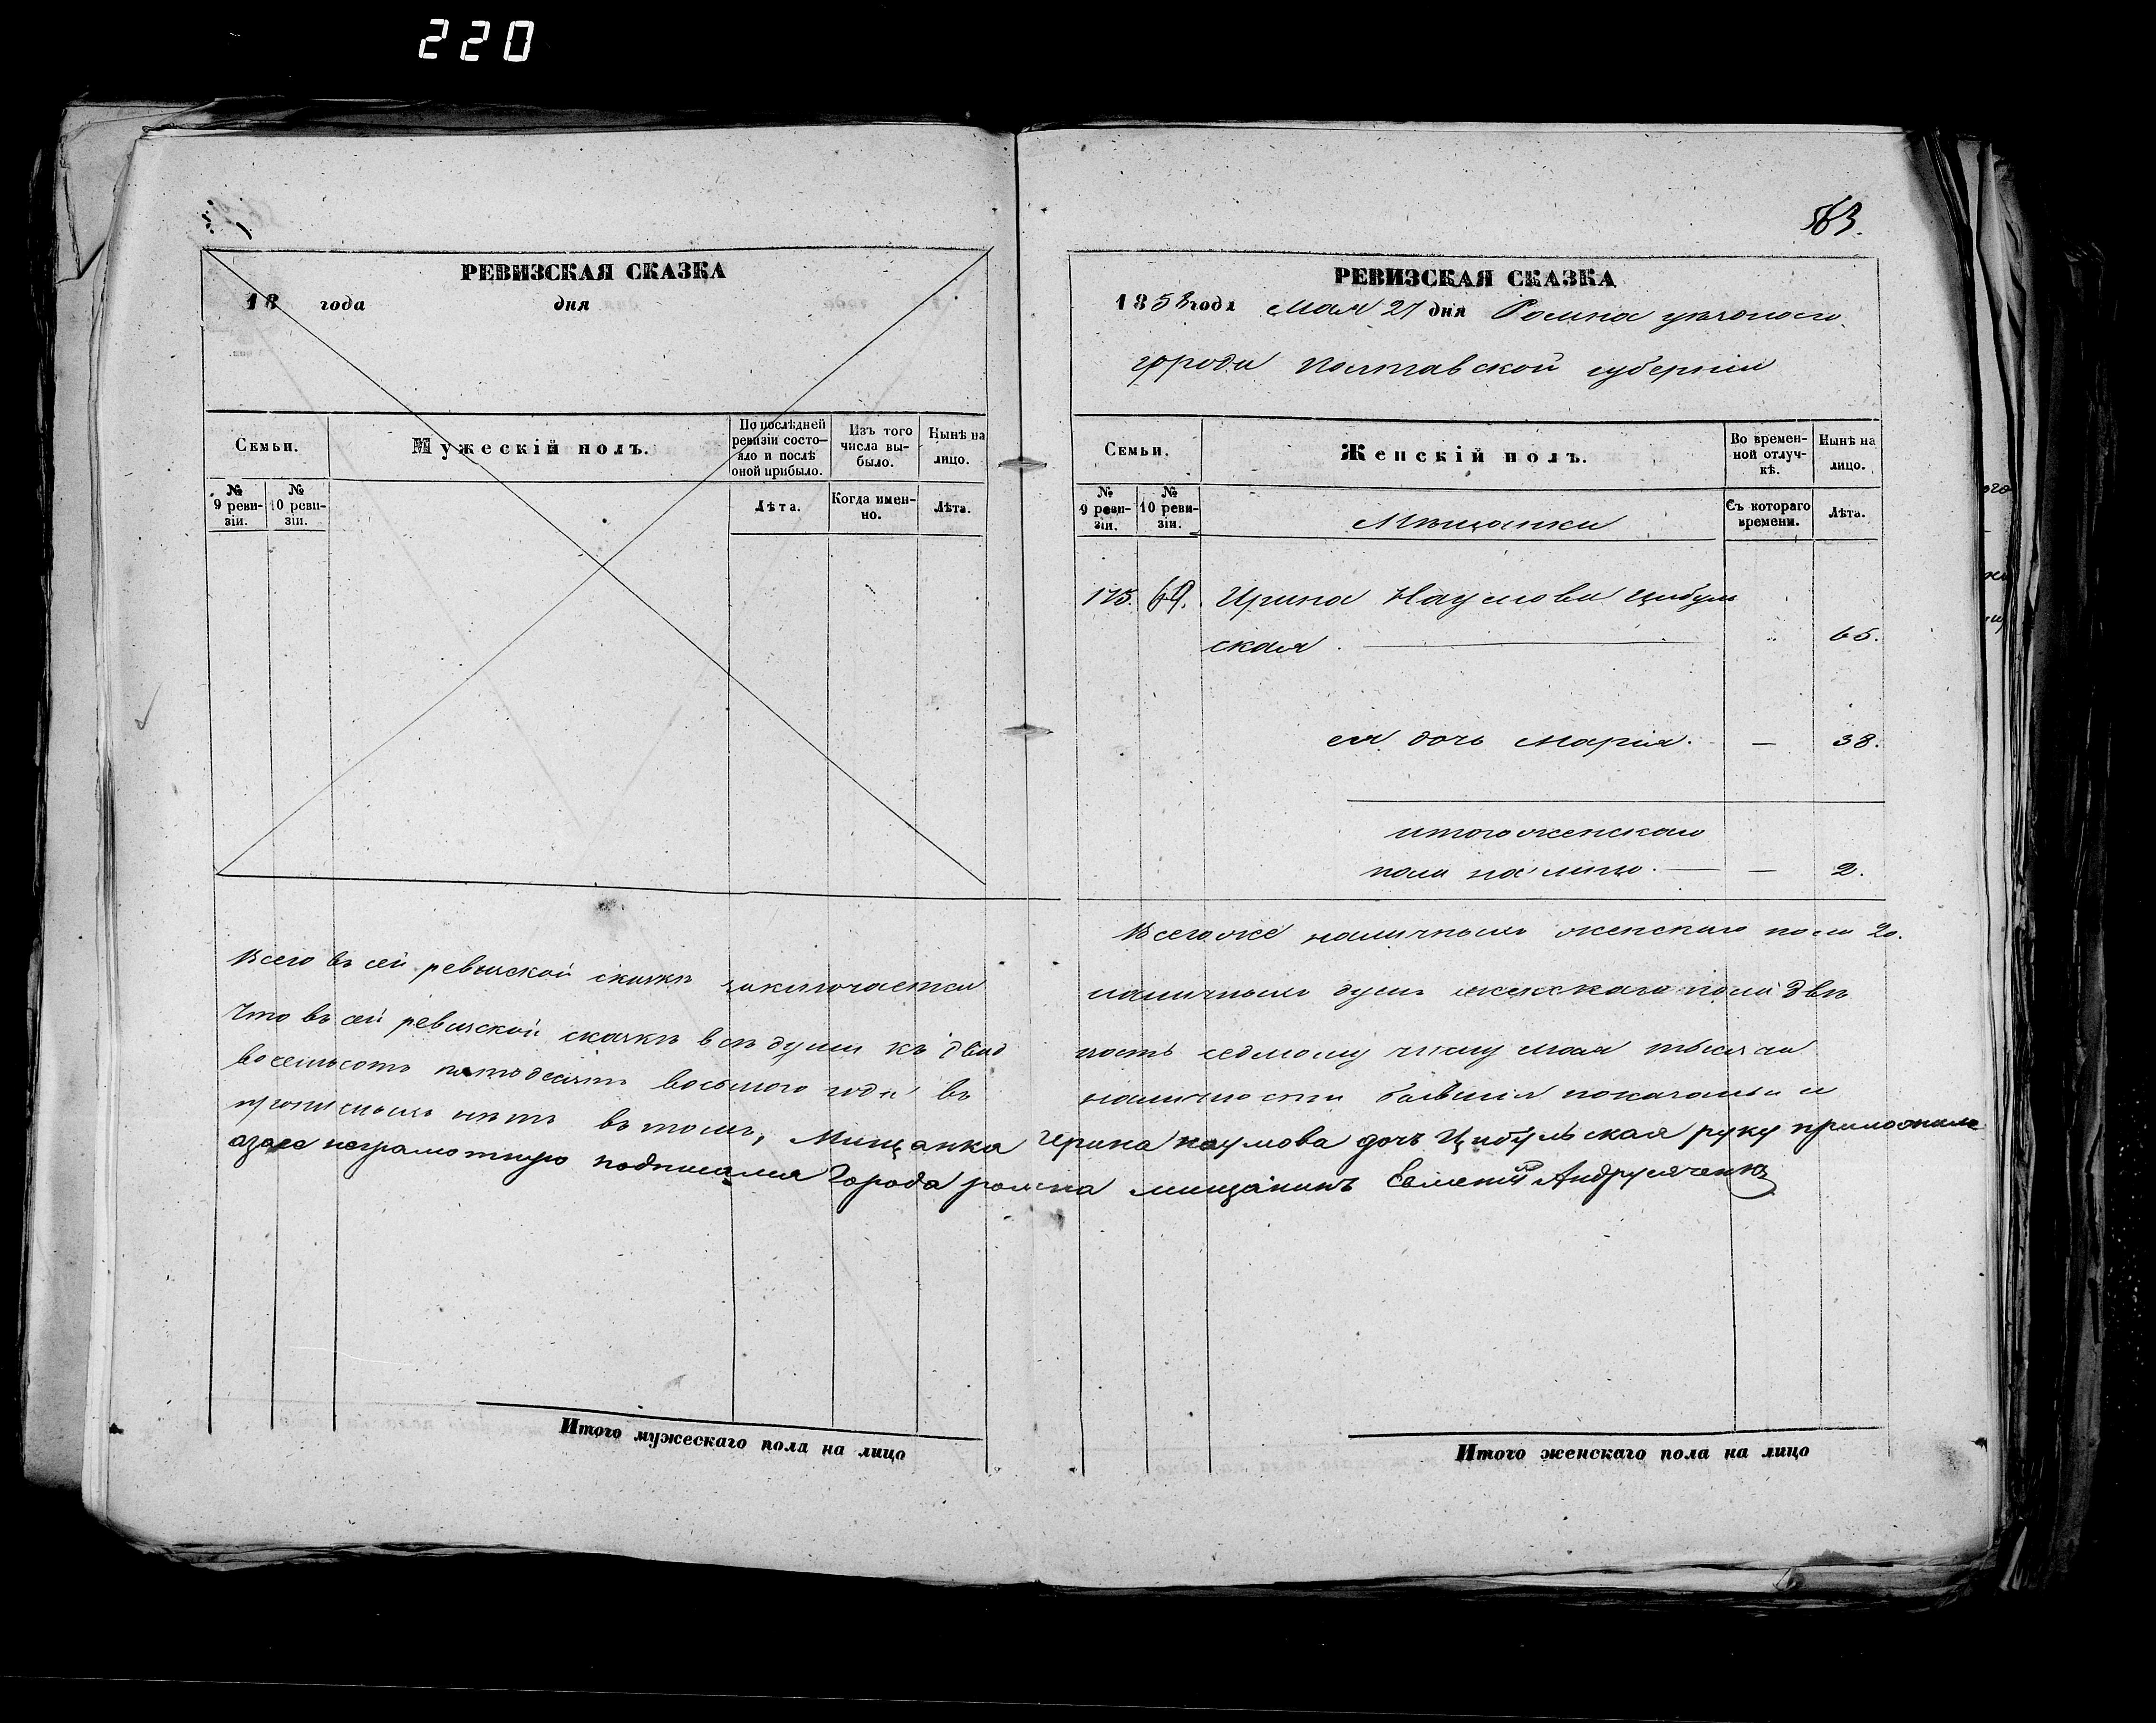 220
563.
РЕВИЗСКАЯ СКАЗКА
18 года дня
Семьи.
Мужескій полъ.
По послѣдней ревизіи состояло и послѣ оной прибыло.
Изъ того числа выбыло.
Нынѣ на лицо.
№ 9 ревизіи.
№ 10 ревизіи.
Лѣта.
Когда именно.
Лѣта.
РЕВИЗСКАЯ СКАЗКА
1858 года Мая 27 дня Ромна уѣзднаго
города Полтавской губерніи
Семьи.
Женскій полъ.
Во временной отлучкѣ.
Нынѣ на лицо.
№ 9 ревизіи.
№ 10 ревизіи.
Мѣщанки
Съ котораго времени.
Лѣта.
175. 69. Ирина Наумова Цибуль
ская. 65.
ея дочь Марія. — 38.
итого женскаго
пола на лицо. — — 2.
Всего же наличныхъ женскаго пола 2.
Всего въ сей ревизской сказкѣ заключается наличныхъ душъ женскаго пола двѣ
Что въ сей ревизской сказкѣ всѣ души къ двад цать седьмому числу мая тысяча
восемьсотъ пятьдесятъ восьмого года въ наличности бывшія показаны и
прописныхъ нѣтъ въ томъ, Мищанка Ирина Наумова дочь Цибульская руку приложила
азаее неграмотную подписался Города ромна мищанинъ Евменій Андрусяченко
Итого мужескаго пола на лицо
Итого женскаго пола на лицо